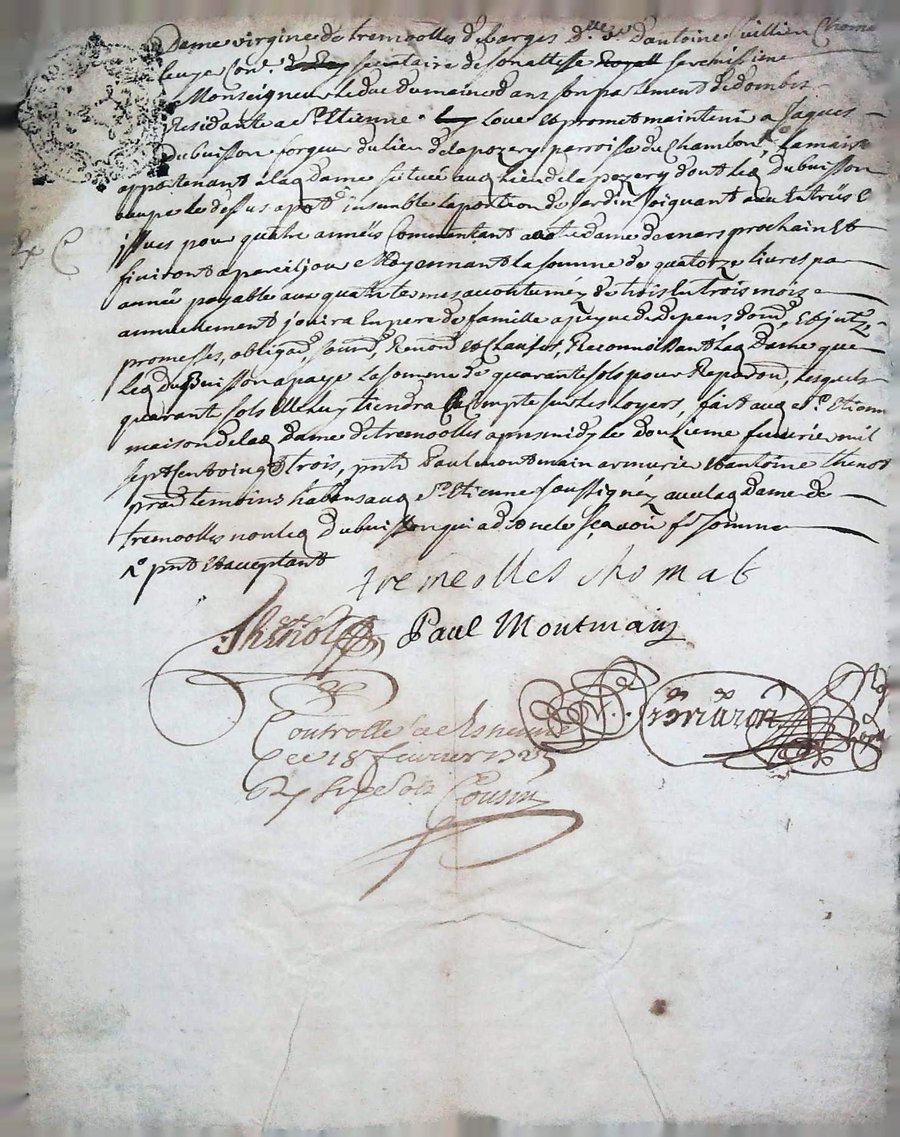 Dame virgine de tremeolles de barges d.lle v.ve d'antoine Jullien Chomat
secretaire de son altesse serenissime
Monseigneur le duc du maine dans son parlement de dombes
Residante a St Etienne loue et promet maintenir a Jaques
Dubuisson forgeur du lieu de la pozery parroisse du Chambon
appartenant a lad dame scituée aud lieu de la pozery dont led dubuisson
occupe le dessus insemble la portion de Jardin Joignant avec entrées et
issues pour quatre années Commencant a notre dame de mars prochain et
finiront a pareil jour Moyennant la somme de quatorze livres par
année payable aux quatre termes accoutumez de trois en trois mois
annuellement jouira en pere de famille a peyne de depens dom.
promesses, obliga.on soum.on Renon.on et clauses, Reconnaissant lad Dame que
led duBuisson a paye la somme de quarante sols pour Reparaon, lesquels
quarante sols elle luy tiendra Compte sur les loyers, fait aud St Etienne
maison de lad dame de tremeolles apres midy le douzieme fevrier mil
sept cent vingt trois, pnts Paul montmain armurier et antoine thenot
prat.n temoins habitans aud St Etienne soussignéz avec lad dame de
tremeolles non led dubuisson qui a dit ne le sçavoir de ce somme
pnt et acceptant
tremeolles chomat
Thenot Paul Montmain
Controllé a St Etienne
ce 18 fevrier 1723
R sept sols Cousin